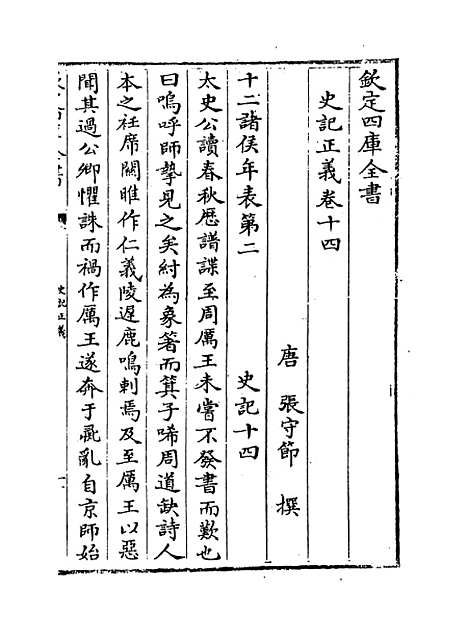 欽定四庫全書
史記正義卷十四
唐 張守節 撰
十二諸侯年表第二 史記十四
太史公讀春秋歷譜諜至周厲王未嘗不發書而歎也
曰嗚呼師摯見之矣紂為象箸而箕子唏周道缺詩人
本之衽席關雎作仁義陵遲鹿鳴刺焉及至厲王以惡
聞其過公卿懼誅而禍作厲王遂奔于彘亂自京師始
史記正義